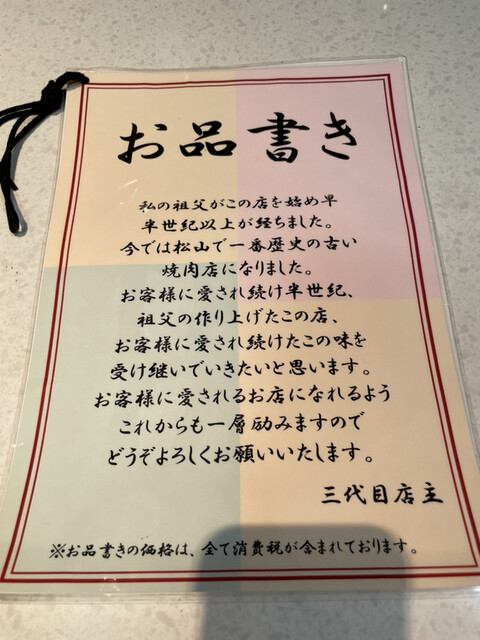 お品書き
私の祖父がこの店を始め早
半世紀以上が経ちました。
今では松山で一番歴史の古い
焼肉店になりました。
お客様に愛され続け半世紀、
祖父の作り上げたこの店、
お客様に愛され続けたこの味を
受け継いでいきたいと思います。
お客様に愛されるお店になれるよう
これからも一層励みますので
どうぞよろしくお願いいたします。
三代目店主
※お品書きの価格は、全て消費税が含まれております。